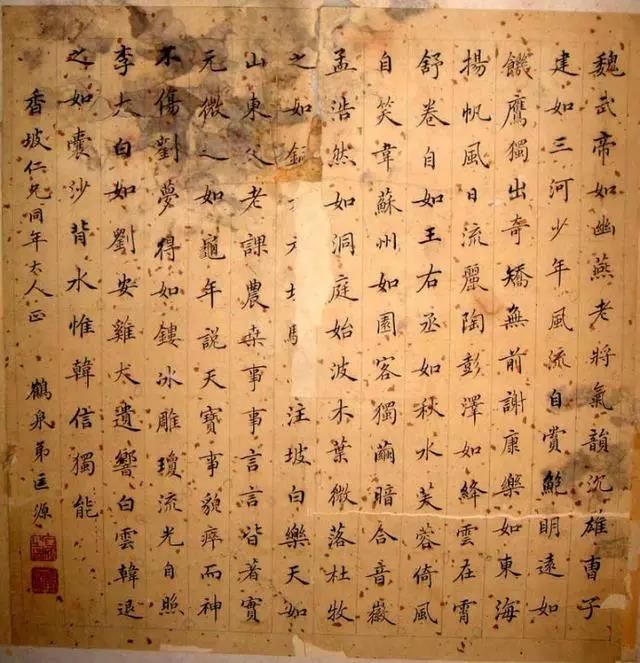 魏武帝如幽燕老將氣韻沉雄曹子
建如三河少年風流自賞鮑明遠如
饑鷹獨出奇矯無前謝康樂如東海
揚帆風日流麗陶彭澤如絳雲在霄
舒卷自如王右丞如秋水芙蓉倚風
自笑韋蘇州如園客獨繭暗合音徽
孟浩然如洞庭始波木葉微落杜牧
之如銅注坡白樂天如
山東父老課農桑事事言言皆著實
元微之如龜年說天寶事貌瘁而神
不傷劉夢得如鏤冰雕瓊流光自照
李太白如劉安雞犬遺響白雲韓退
之如囊沙背水惟韓信獨能
香坡仁兄同年大人正
鶴泉弟匡源